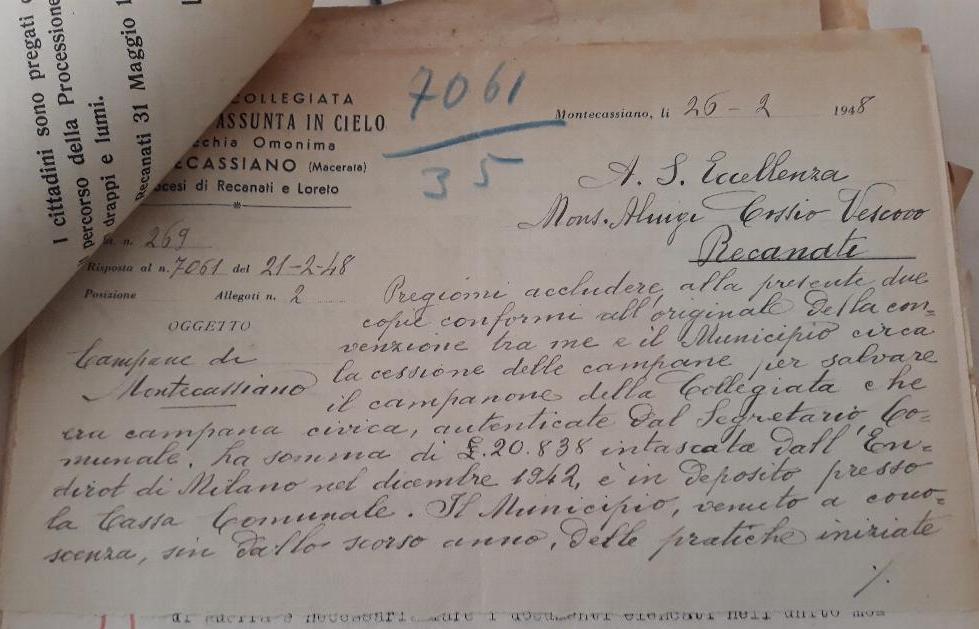 I cittadini sono pregati
percorso della Processione
drappi e lumi.
Recanati 31 Maggio 1
COLLEGIATA
ASSUNTA IN CIELO
cchia Omonima
ECASSIANO (Macerata)
ocesi di Recanati e Loreto
7061
35
Montecassiano, li 26-2 1948
A. S. Eccellenza
Mons. Aluigi Cossio Vescovo
Recanati
n. 269
Risposta al n. 7061 del 21-2-48
Posizione Allegati n. 2
OGGETTO
Campane di
Montecassiano
Pregiomi accludere alla presente due
copie conformi all'originale della con=
venzione tra me e il Municipio circa
la cessione delle campane per salvare
il campanone della Collegiata che
era campana civica, autenticate dal Segretario Co=
munale. La somma di £.20.838 intascata dall'En=
dirot di Milano nel dicembre 1942, è in deposito presso
la Cassa Comunale. Il Municipio, venuto a cono=
scenza, sin dallo scorso anno, delle pratiche iniziate
./.
di guerra è i documenti elencati nell'unito mo=